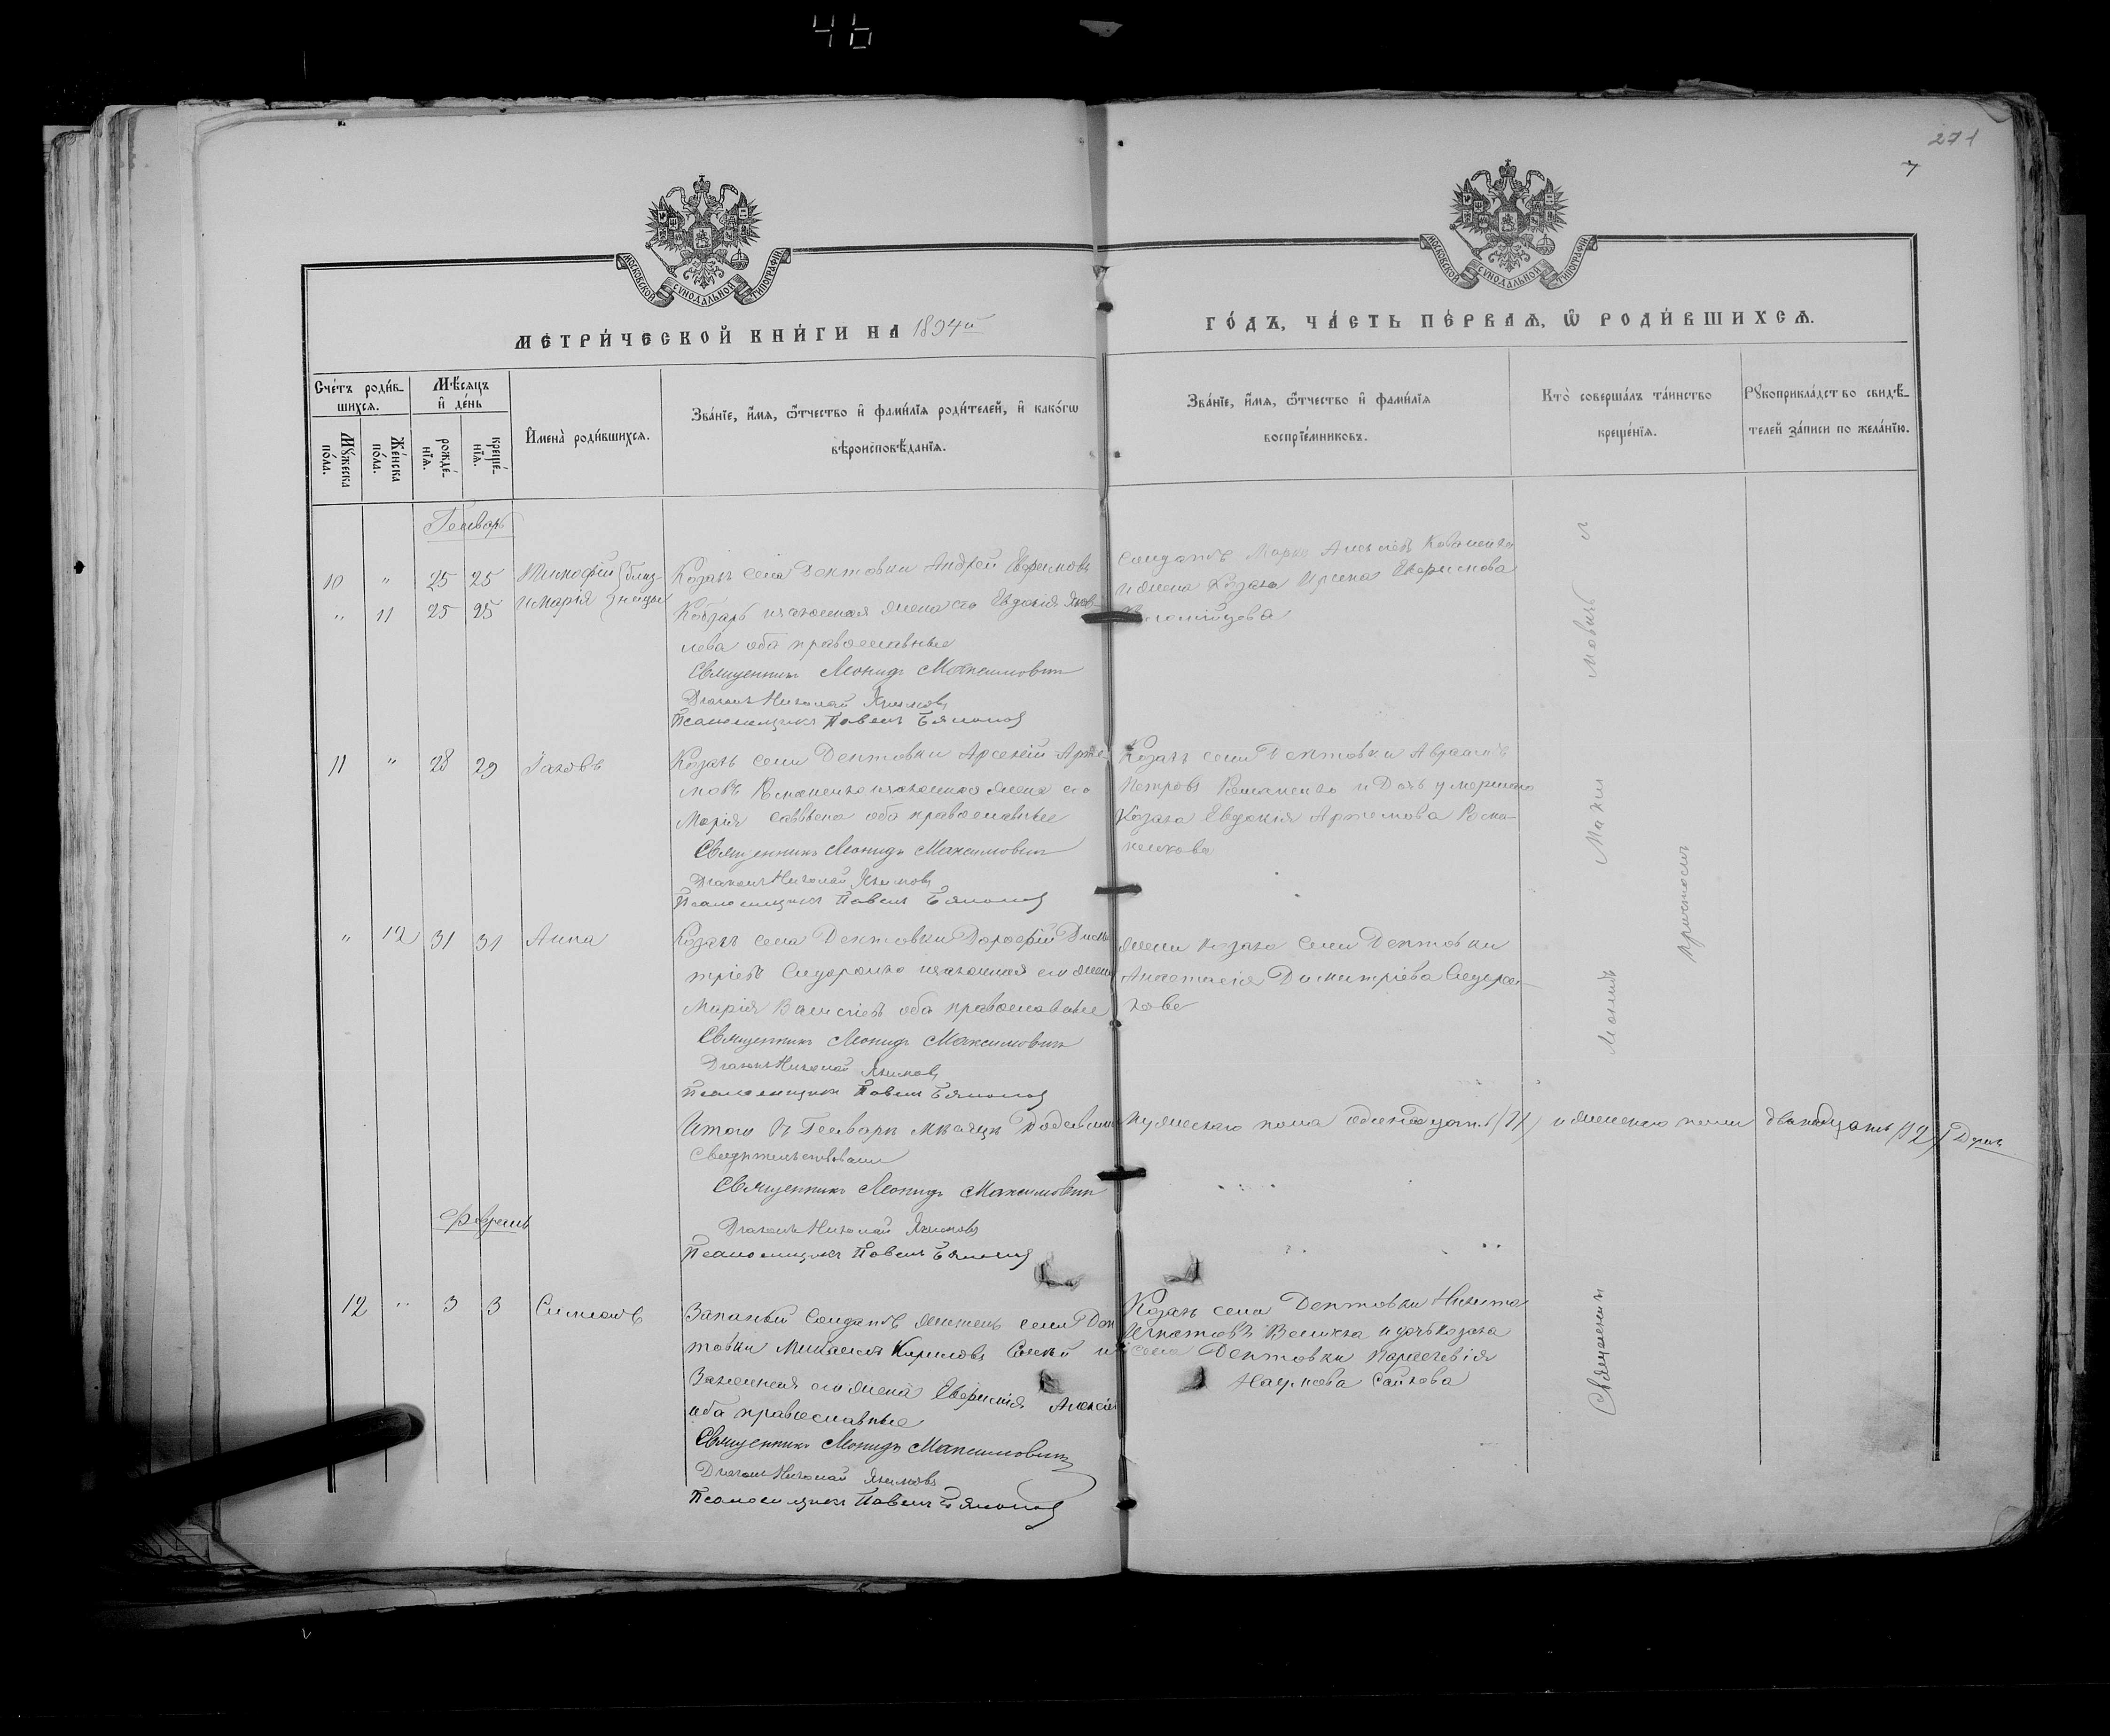 46
271
7
МОСКОВСКОЙ СѴНОДАЛЬНОЙ ТИПОГРАФІИ
МОСКОВСКОЙ СѴНОДАЛЬНОЙ ТИПОГРАФІИ
МЕТРИ́ЧЕСКОЙ КНИ́ГИ НА 1894й
ГО́ДЪ, ЧА́СТЬ ПЕ́РВАѦ, Ѿ РОДИ́ВШИХСѦ.
Сче́тъ роди́в-
шихсѧ.
Мѣ́сѧцъ
и҆ де́нь
Мꙋжеска по́ла.
Же́нска по́ла.
рожде́-
нїѧ.
креще́-
нїѧ.
И҆мена̀ роди́вшихсѧ.
Зва́нїе, и҆́мѧ, ѻ҆́тчество и҆ фами́лїѧ роди́телей, и҆ како́гѡ
вѣроисповѣ́данїѧ.
Зва́нїе, и҆́мѧ, ѻ҆́тчество и҆ фами́лїѧ
воспрїе́мниковъ.
Кто̀ соверша́лъ та́инство
креще́нїѧ.
Рꙋкоприкла́дство свидѣ́-
телей за́писи по жела́нїю.
Генварь
10 " 25 25 Тимофій близ-
" 11 25 25 и Марія нецы
Козакъ села Дептовки Андрей Евфимовъ
Кобзарь и законная жена его Евдокія Яков-
лева оба православные
Священникъ Леонидъ Максимовичъ
Діаконъ Николай Якимовъ
Псаломщикъ Павелъ
Солдатъ Марко
и жена Козака Ирина Евфимова
11 " 28 29 Іаковъ
Козакъ села Дептовки Арсеній Арте-
мовъ Романенко и законная жена его
Марія Савввена оба православные
Священникъ Леонидъ Максимовичъ
Діаконъ Николай Якимовъ
Псаломщикъ Павелъ
Козакъ села Дептовки Авраамъ
Петровъ Романенко и Дочь умершаго
Козака Евдокія Артемова Рома-
ненкова
" 12 31 31 Анна
Козакъ села Дептовки Дорофій Дими-
тріевъ Сидоренко и законная его жена
Марія оба православные
Священникъ Леонидъ Максимовичъ
Діаконъ Николай Якимовъ
Псаломщикъ Павелъ
жена козака села Дептовки
Анастасія Димитріева Сидорен-
кова
Итого въ Генварѣ мѣсяцѣ мужескаго пола одинадцать (11) и женскаго пола двѣнадцать (12)
Свидѣтельствовали
Священникъ Леонидъ Максимовичъ
Діаконъ Николай Якимовъ
Псаломщикъ Павелъ
Февраль
12 " 3 3 Симеонъ
Запасный Солдатъ житель села Деп
товки Михаилъ Кириловъ и
Законная его жена Евфимія Алексіе
оба православные
Священникъ Леонидъ Максимовичъ
Діаконъ Николай Якимовъ
Псаломщикъ Павелъ
Козакъ села Дептовки Никита
Игнатовъ и дочь козака
села Дептовки Параскевія
Наумова
Священникъ
Леонидъ
Макси
мовичъ